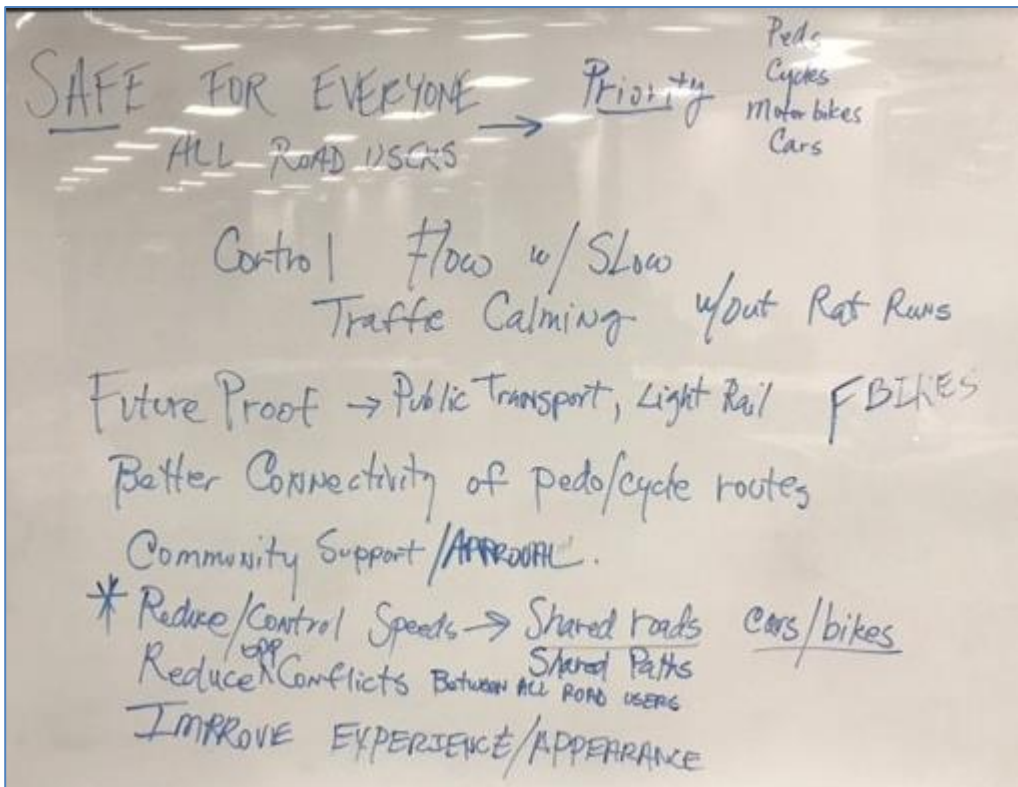 SAFE FOR EVERYONE → Priority
Peds
Cycles
Motorbikes
Cars
ALL ROAD USERS
Control Flow w/ SLow
Traffic Calming w/out Rat Runs
Future Proof → Public Transport, Light Rail BIKES
Better Connectivity of pedo/cycle routes
Community Support/APPROVAL.
* Reduce/Control Speeds → Shared roads cars/bikes
Shared Paths
Reduce opp Conflicts BETWEEN ALL ROAD USERS
IMPROVE EXPERIENCE/APPEARANCE